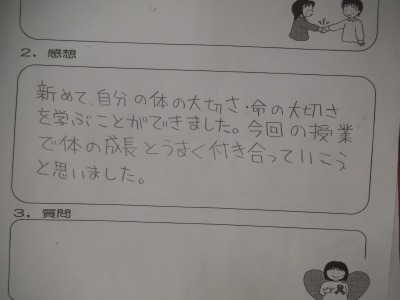 2. 感想
新めて、自分の体の大切さ・命の大切さ
を学ぶことができました。今回の授業
で体の成長とうまく付き合っていこう
と思いました。
3. 質問